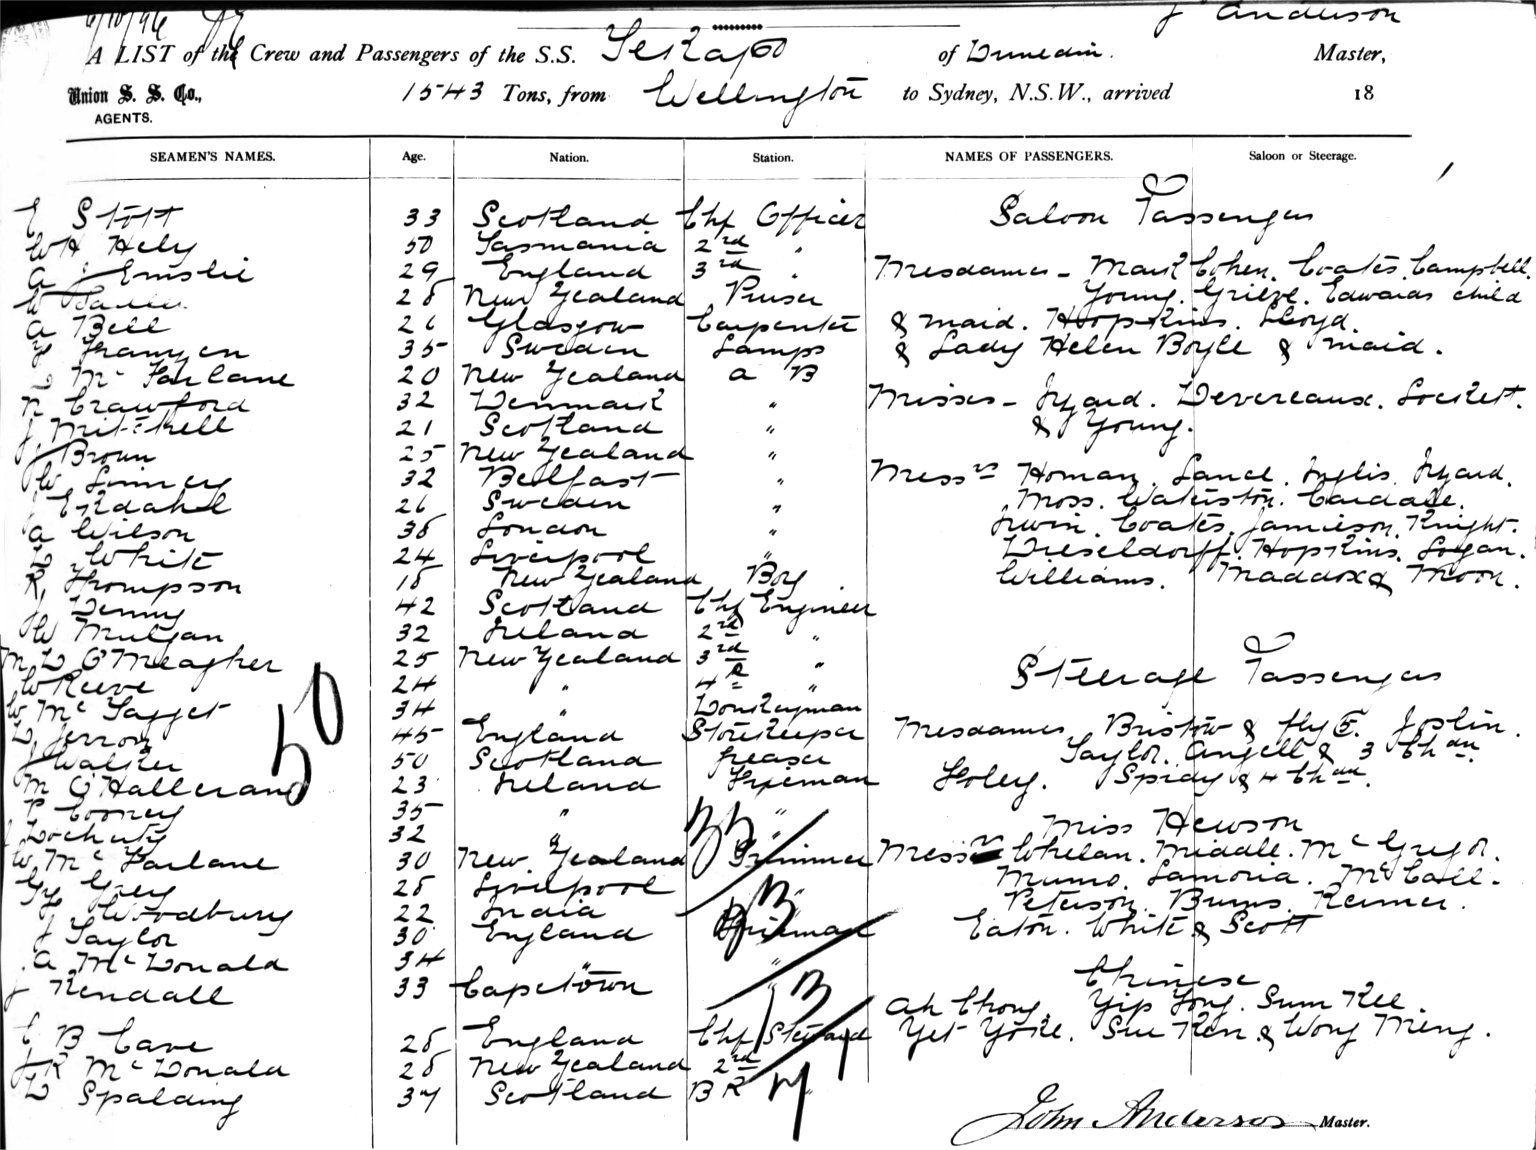 6/10/96
J Anderson
A LIST of the Crew and Passengers of the S.S. Tekapo of Dunedin. Master,
Union S. S. Co., 1543 Tons, from Wellington to Sydney, N.S.W., arrived 18
AGENTS.
SEAMEN'S NAMES. Age. Nation. Station. NAMES OF PASSENGERS. Saloon or Steerage.
E Stott 33 Scotland Chf Officer
W H Hely 50 Tasmania 2nd "
A J Emslie 29 England 3rd "
W 28 New Zealand Purser
A Bell 26 Glasgow Carpenter
Franzen 35 Sweden Lamps
D McFarlane 20 New Zealand A B
N Crawford 32 Denmark "
J Mitchell 21 Scotland "
J Brown 25 New Zealand "
W 32 Belfast "
J Ekdahl 26 Sweden "
A Wilson 38 London "
D White 24 Liverpool "
R Thompson 18 New Zealand Boy
J Denny 42 Scotland Chf Engineer
W Mulgan 32 Ireland 2nd "
M D O'Meagher 25 New Zealand 3rd "
W Reeve 24 " 4th "
W McTagget 34 " Donkeyman
D Jerrom 45 England Storekeeper
J Walker 50 Scotland Greaser
M O'Halleran 23 Ireland Fireman
P Cooney 35 " "
J Docherty 32 "
W McFarlane 30 New Zealand Trimmer
Grey 28 Liverpool "
Woodbury 22 India "
J Taylor 30 England Fireman
A McDonald 34 " "
J Kendall 33 Capetown "
C B Cave 28 England Chf Steward
J R McDonald 28 New Zealand 2nd "
D Spalding 37 Scotland B R "
50
Saloon Passengers
Mesdames - Mark Cohen. Coates. Campbell.
Young. Grieve. Edwards child
& maid. Hopkins. Lloyd.
& Lady Helen Boyle & maid.
Misses - Izard. Devereaux. Lockett.
& Young.
Messrs Homan. Lance. Inglis. Izard.
Moss. Waterston. Cardale.
Irwin. Coates. Jamieson. Knight.
Dieseldorff. Hopkins. Logan.
Williams. Maddox & Moon.
Steerage Passengers
Mesdames Bristow & fly 5. Joslin.
Taylor. Angell & 3 Chdn.
Foley. Spray & 4 Chdn.
Miss Hewson
Messrs Whelan. Middle. McGregor.
Munro. Lamoria. McCall.
Peterson. Burns. Reimer.
Eaton. White & Scott
Chinese
Ah Chong. Yip Tong. Sum Kee.
Yet Yoke. Sue Ken & Wong Ming.
John Anderson Master.